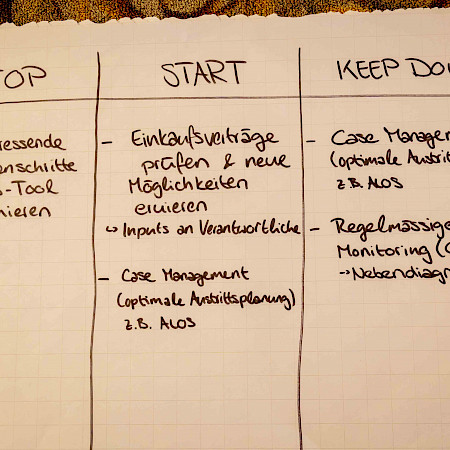 TOP
ressende
enschritte
-Tool
ieren
START
- Einkaufsverträge
prüfen & neue
Möglichkeiten
eruieren
↳ Inputs an Verantwortliche
- Case Management
(optimale Austrittsplanung)
z.B. ALOS
KEEP DO
- Case Managem
(optimale Austrit
z.B. ALOS
- Regelmässige
Monitoring (
→ Nebendiagn